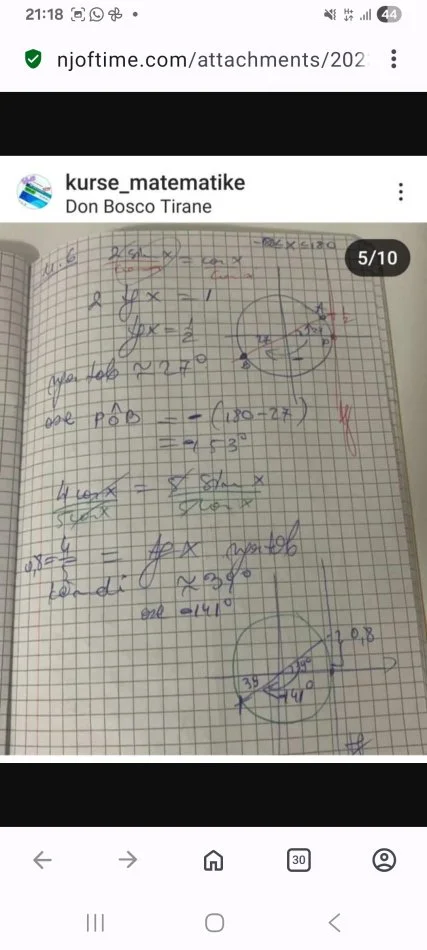 21:18
44
njoftime.com/attachments/202
kurse_matematike
Don Bosco Tirane
5/10
2 sin x = cos x
cos x cos x
2 tg x = 1
tg x = 1/2
≈ 27°
ose PÔB = -(180-27)
= -153°
4 cos x = 5 sin x
5 cos x 5 cos x
0,8 = 4/5 = tg x
këndi ≈ 39°
ose -141°
0,8
39
39°
-141°
30